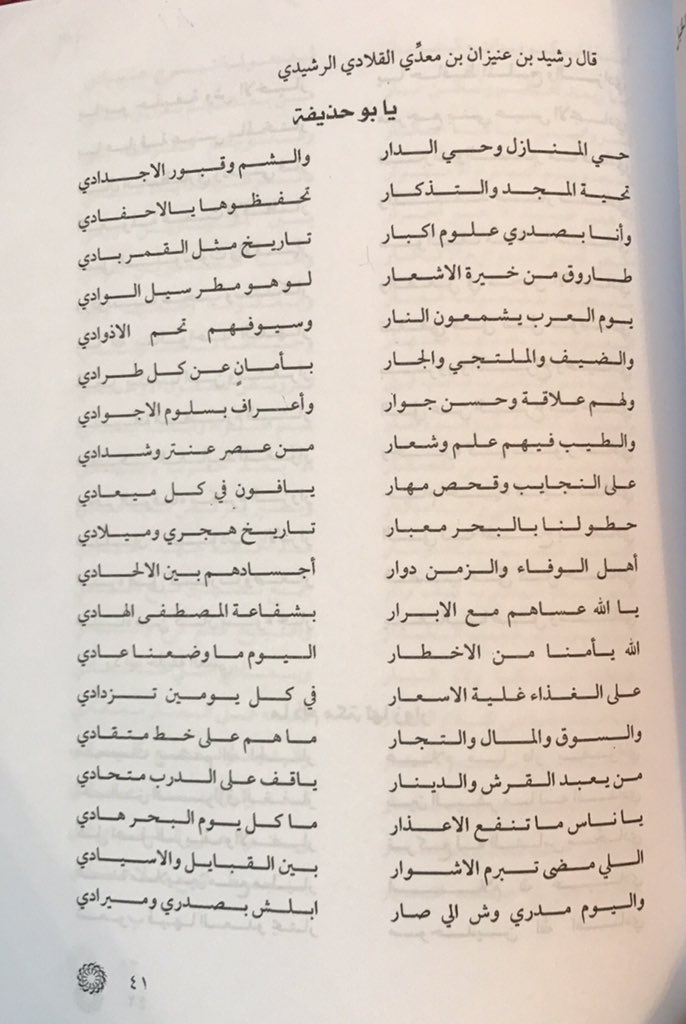 قال رشيد بن عنيزان بن معدِّي القلادي الرشيدي
يا بو حذيفة
حي المنازل وحي الدار والشم وقبور الاجدادي
تحية المجد والتذكار تحفظوها بالاحفادي
وأنا بصدري علوم اكبار تاريخ مثل القمر بادي
طاروق من خيرة الاشعار لو هو مطر سيل الوادي
يوم العرب يشمعون النار وسيوفهم تحم الاذوادي
والضيف والملتجي والجار بأمانٍ عن كل طرادي
ولهم علاقة وحسن جوار وأعراف بسلوم الاجوادي
والطيب فيهم علم وشعار من عصر عنتر وشدادي
على النجايب وقحص مهار يافون في كل ميعادي
حطو لنا بالبحر معبار تاريخ هجري وميلادي
أهل الوفاء والزمن دوار أجسادهم بين الالحادي
يا الله عساهم مع الابرار بشفاعة المصطفى الهادي
الله يأمنا من الاخطار اليوم ما وضعنا عادي
على الغذاء غلية الاسعار في كل يومين تزدادي
والسوق والمال والتجار ما هم على خط متقادي
من يعبد القرش والدينار ياقف على الدرب متحادي
يا ناس ما تنفع الاعذار ما كل يوم البحر هادي
اللي مضى تبرم الاشوار بين القبايل والاسيادي
واليوم مدري وش الي صار ابلش بصدري وميرادي
٤١